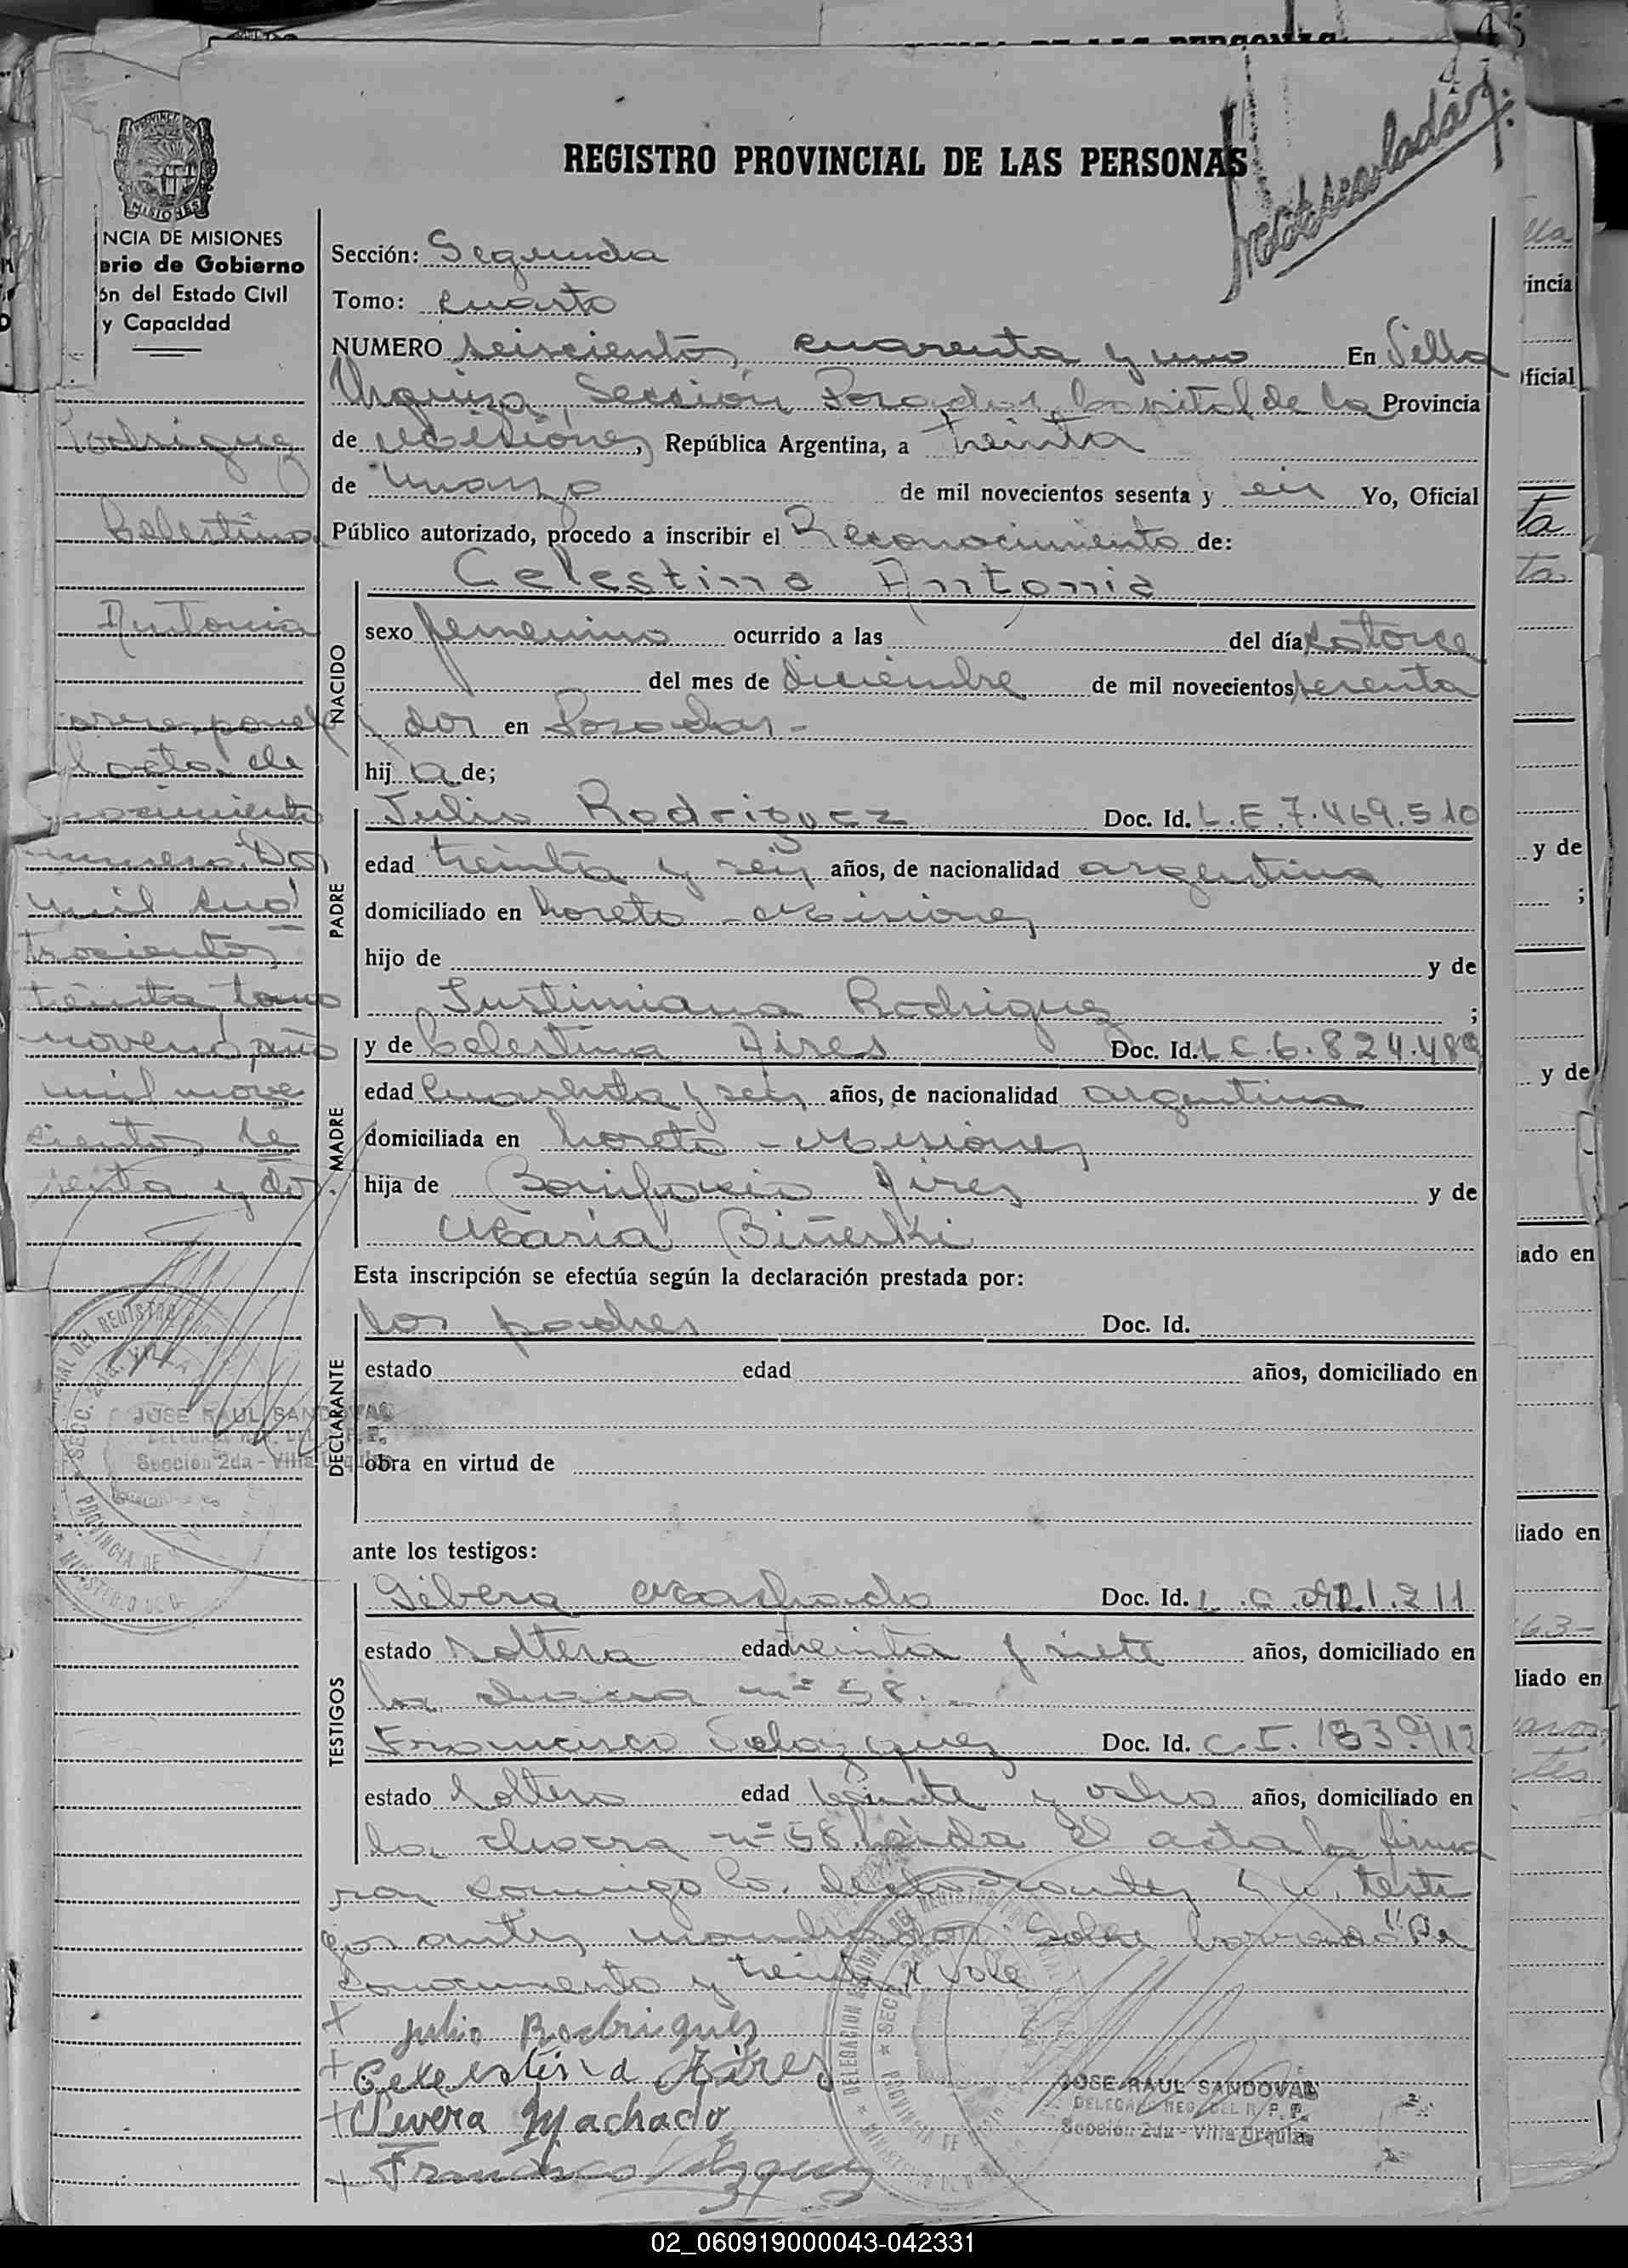 REGISTRO PROVINCIAL DE LAS PERSONAS
MISIONES
NCIA DE MISIONES
erio de Gobierno
ón del Estado Civil
y Capacidad
Rodriguez
Celestina
Antonia
corresponde
l acta de
nacimiento
numero Dos
mil cua
trocientos
treinta tomo
noveno año
mil nove
cientos se
senta y dos.
JOSE RAUL SANDOVAL
Sección 2da - Villa Urquiza
Sección: Segunda
Tomo: cuarto
NUMERO seiscientos cuarenta y uno En Villa
Urquiza, Sección Posadas, Capital de la Provincia
de Misiones, República Argentina, a treinta
de marzo de mil novecientos sesenta y seis Yo, Oficial
Público autorizado, procedo a inscribir el Reconocimiento de:
NACIDO
Celestina Antonia
sexo femenino ocurrido a las del día catorce
del mes de diciembre de mil novecientos sesenta
y dos en Posadas.-
hij a de;
PADRE
Julio Rodriguez Doc. Id. L.E.7.469.510
edad treinta y seis años, de nacionalidad argentina
domiciliado en Loreto - Misiones
hijo de y de
Justiniana Rodriguez ;
MADRE
y de Celestina Aires Doc. Id. L C.6.824.489
edad cuarenta y seis años, de nacionalidad argentina
domiciliada en Loreto - Misiones
hija de Bonifacio Aires y de
Maria Biñerki
Esta inscripción se efectúa según la declaración prestada por:
DECLARANTE
los padres Doc. Id.
estado edad años, domiciliado en
obra en virtud de
ante los testigos:
TESTIGOS
Sibera Machado Doc. Id. L.C.
estado soltera edad treinta y siete años, domiciliado en
la chacra nº 58.-
Francisco Velazquez Doc. Id. C.I. 183.912
estado soltero edad veinte y ocho años, domiciliado en
la chacra nº 58. Leida el acta la firma
ron conmigo los declarantes y los testi
gos antes nombrados. Sobre borrado "Re
conocimiento y treinta" vale
+ Julio Rodriguez
+ Celestina Aires
+ Severa Machado
+ Francisco Velazquez
JOSE RAUL SANDOVAL
DELEGADO REG. DEL R. P. P.
Sección 2da - Villa Urquiza
02_060919000043-042331